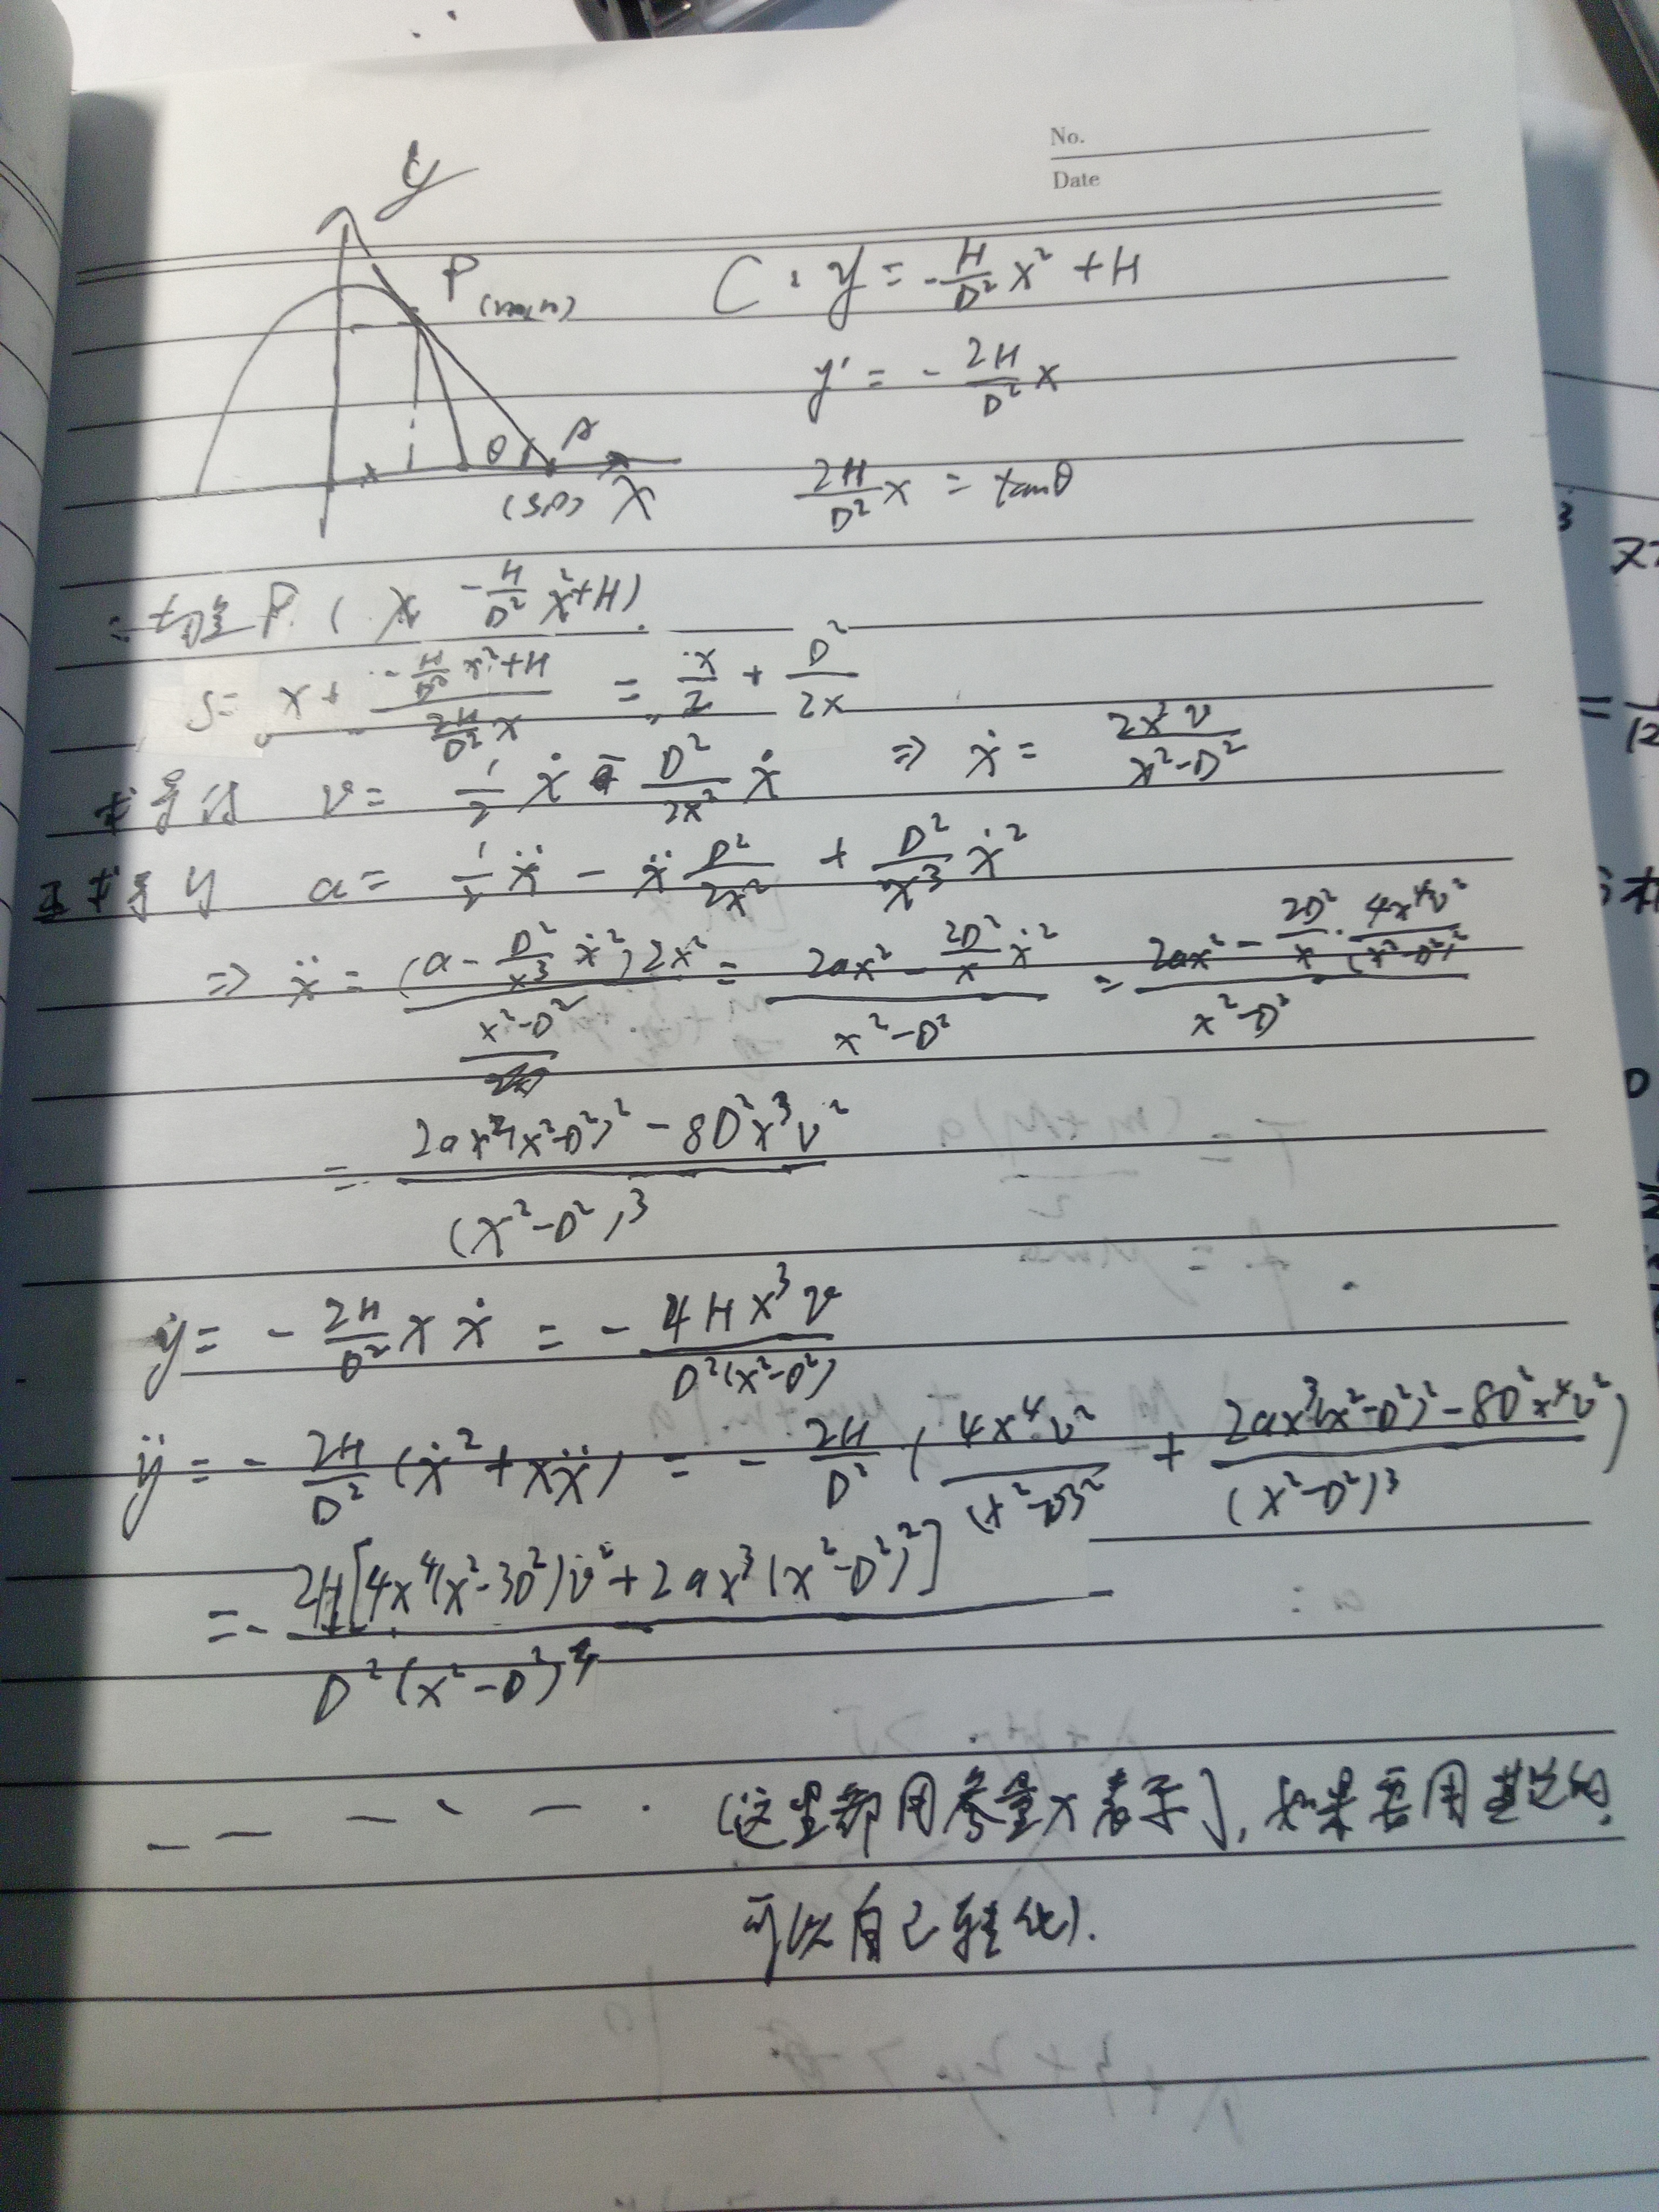 No.
Date
y
P (m,n)
θ A
(S,0) X
C: y = -\frac{H}{D²}x² + H
y' = -\frac{2H}{D²}x
\frac{2H}{D²}x = tanθ
P ( x -\frac{H}{D²}x²+H).
S = x + \frac{-\frac{H}{D²}x²+H}{\frac{2H}{D²}x} = \frac{x}{2} + \frac{D²}{2x}
求导得 v = \frac{1}{2}ẋ - \frac{D²}{2x²}ẋ ⇒ ẋ = \frac{2x²v}{x²-D²}
求导 a = \frac{1}{2}ẍ - ẍ\frac{D²}{2x²} + \frac{D²}{x³}ẋ²
⇒ ẍ = \frac{(a-\frac{D²}{x³}ẋ²)2x²}{x²-D²} = \frac{2ax²-\frac{2D²}{x}ẋ²}{x²-D²} = \frac{2ax²-\frac{2D²}{x}·\frac{4x⁴v²}{(x²-D²)²}}{x²-D²}
= \frac{2ax²(x²-D²)²-8D²x³v²}{(x²-D²)³}
ẏ = -\frac{2H}{D²}xẋ = -\frac{4Hx³v}{D²(x²-D²)}
ÿ = -\frac{2H}{D²}(ẋ²+xẍ) = -\frac{2H}{D²}(\frac{4x⁴v²}{(x²-D²)²} + \frac{2ax³(x²-D²)²-8D²x⁴v²}{(x²-D²)³})
= -\frac{2H[4x⁴(x²-3D²)v²+2ax³(x²-D²)²]}{D²(x²-D²)³}
(这里都用参量x表示), 如果要用其它的,
可以自己转化).